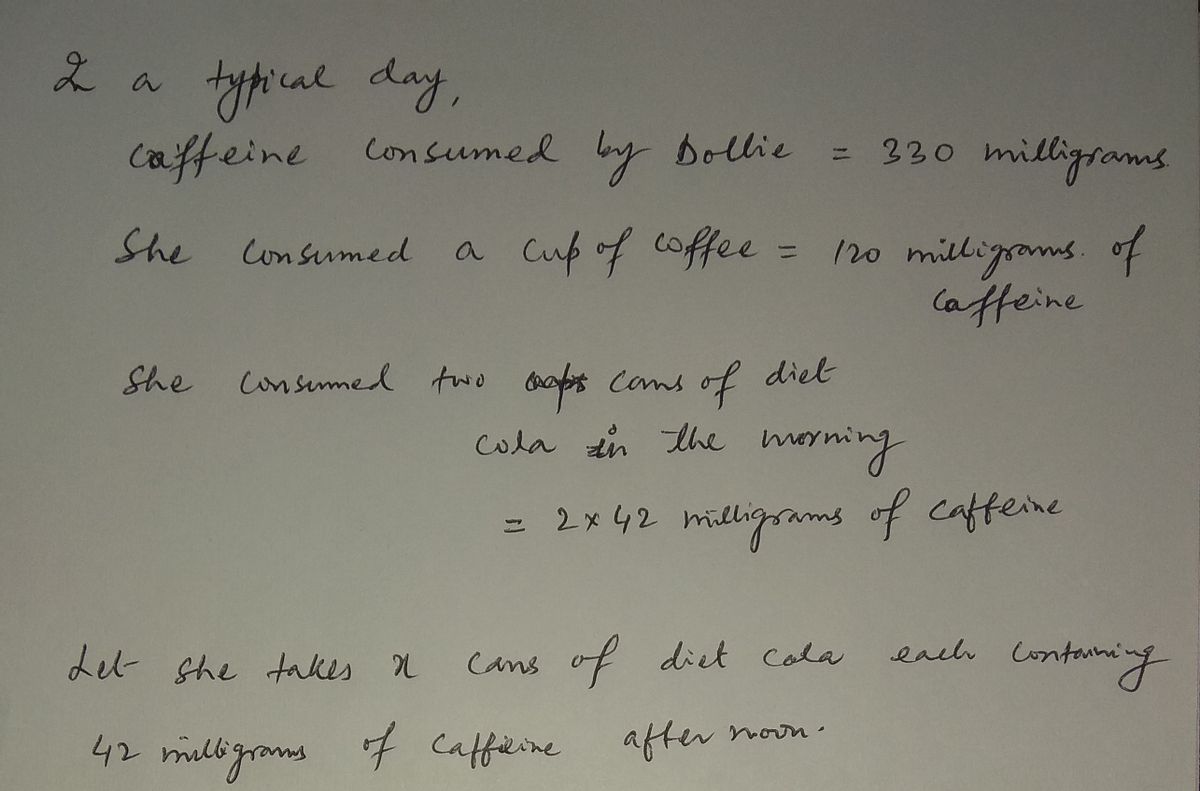 I a typical day,
caffeine consumed by Dollie = 330 milligrams.
She consumed a cup of coffee = 120 milligrams. of
caffeine
She consumed two cans of diet
cola in the morning
= 2 x 42 milligrams of caffeine
Let she takes x cans of diet cola each containing
42 milligrams of caffeine after noon.